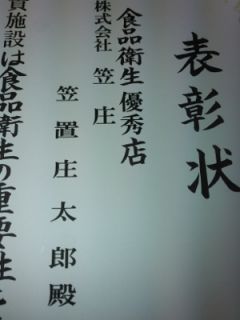 表彰状
食品衛生優秀店
株式会社 笠庄
笠置庄太郎殿
貴施設は食品衛生の重要性を